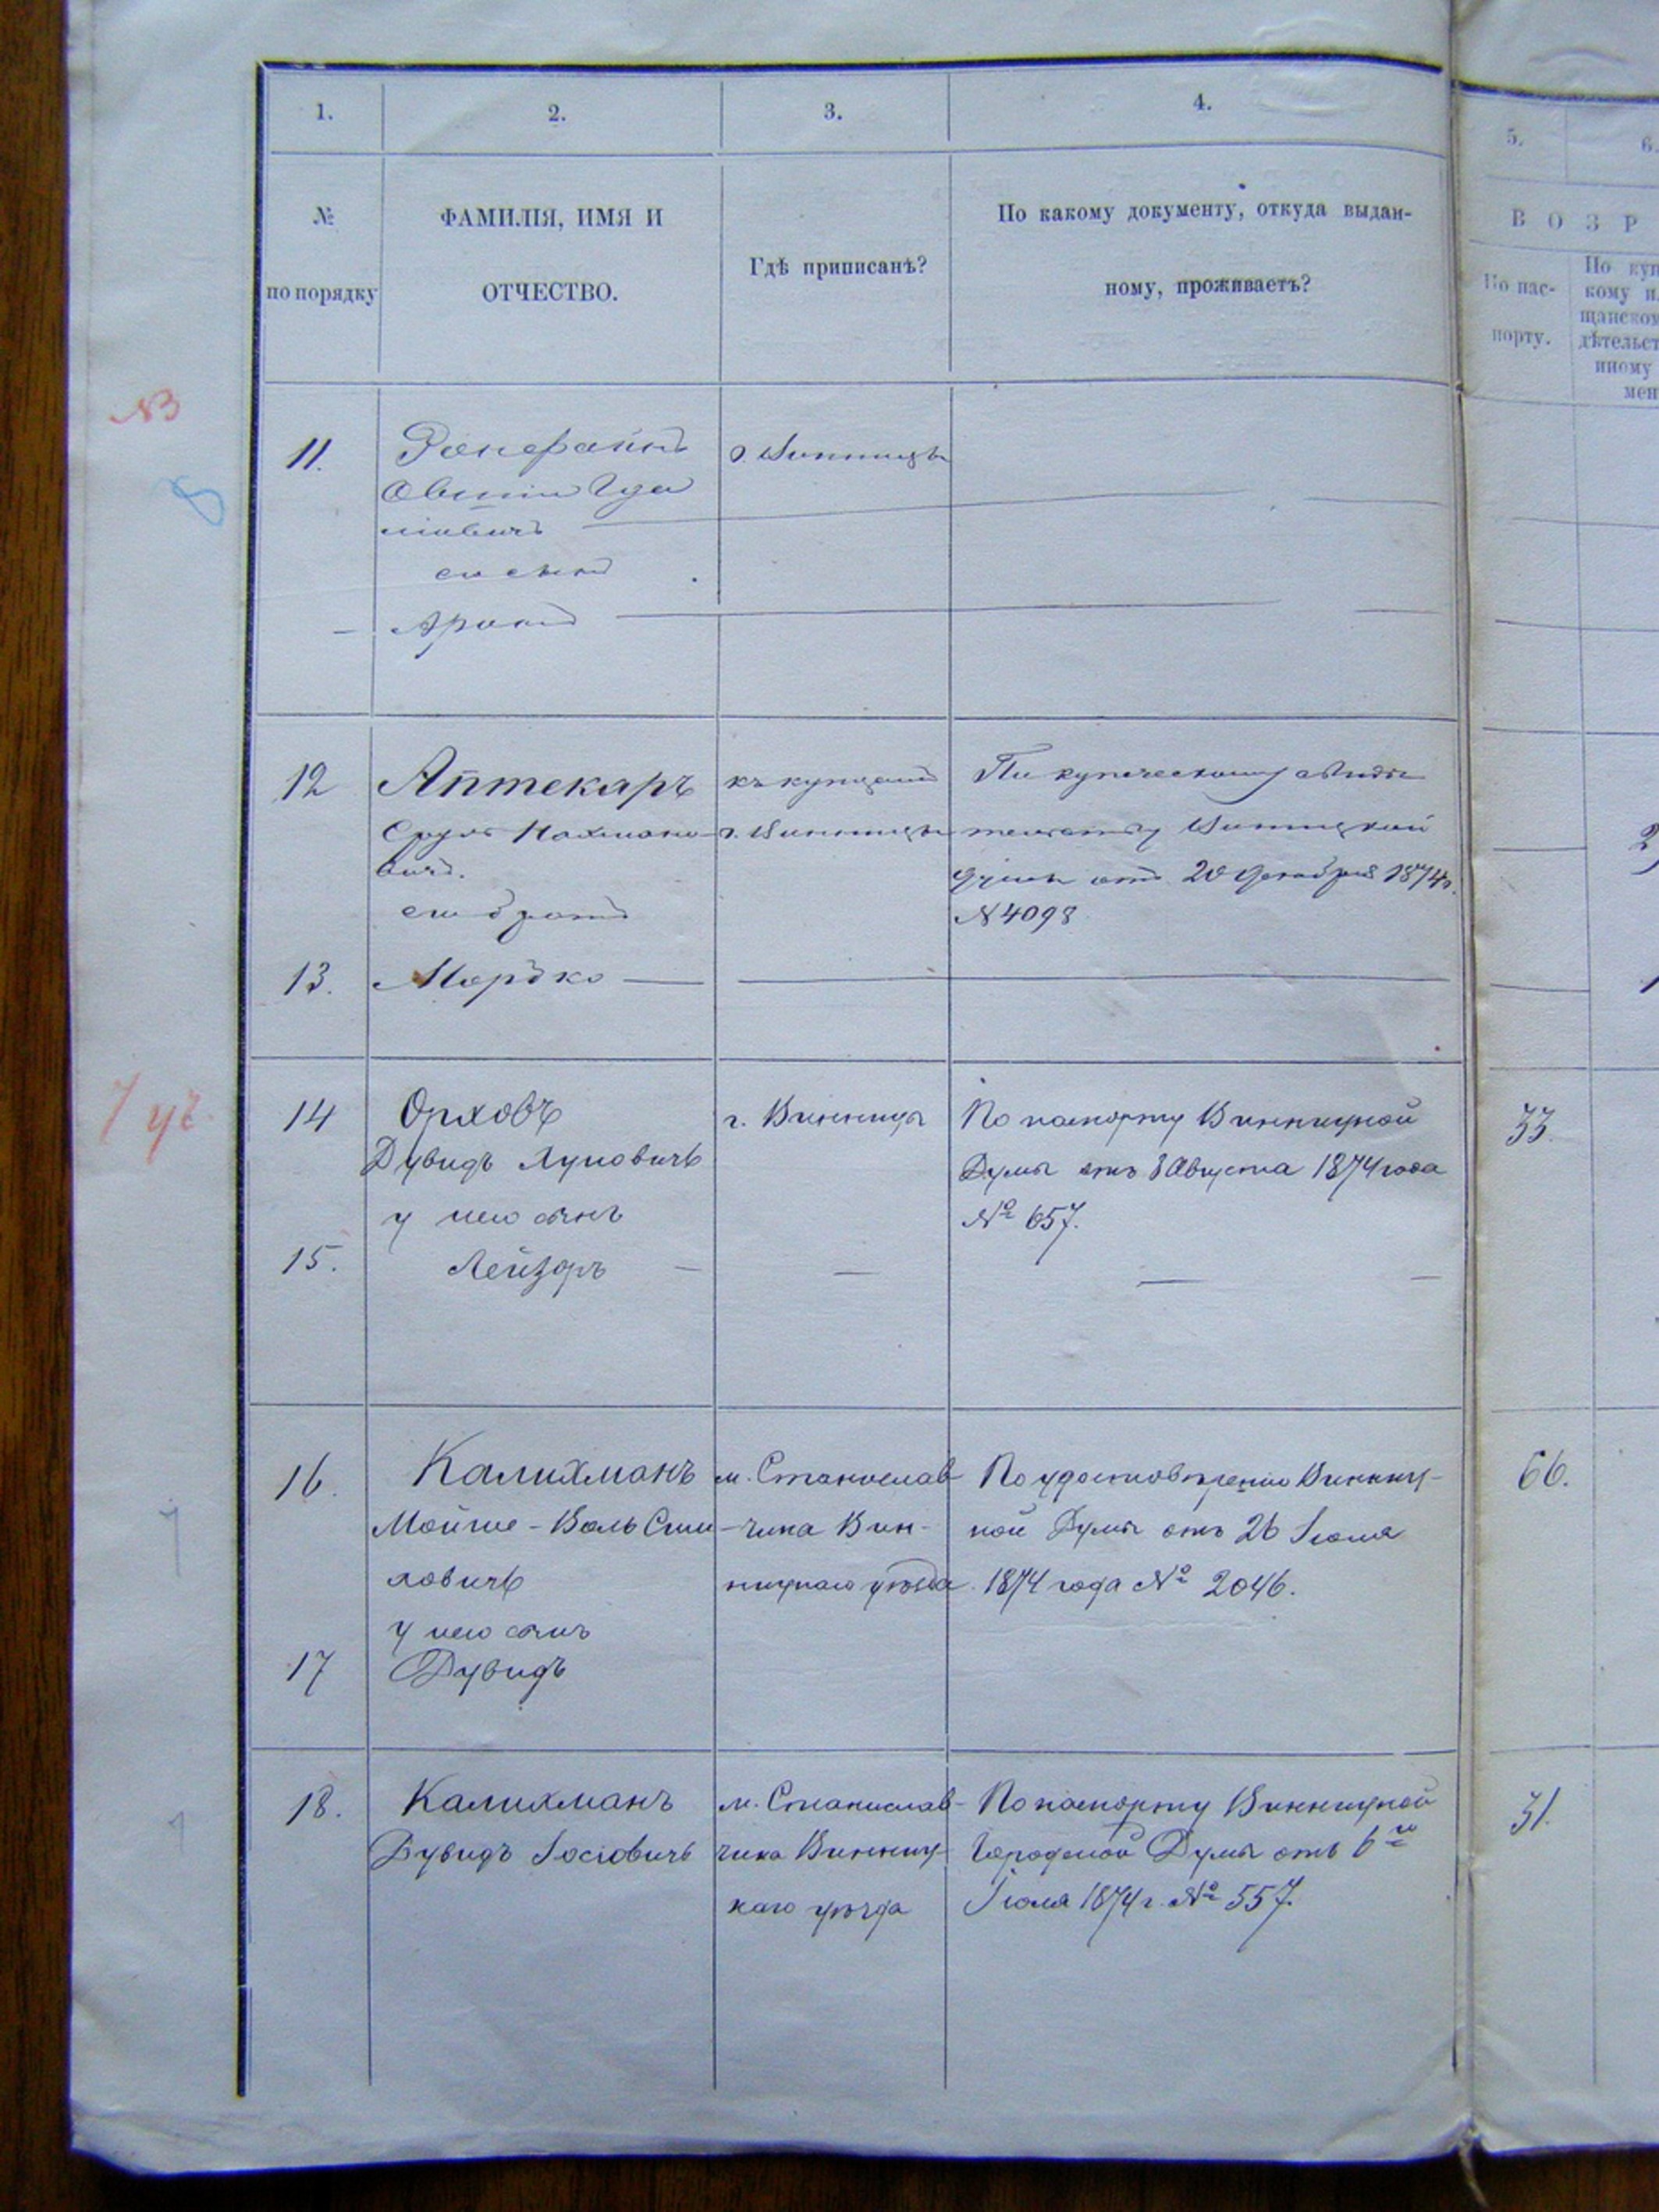 1.
2.
3.
4.
5.
6.
№
по порядку
ФАМИЛІЯ, ИМЯ И
ОТЧЕСТВО.
Гдѣ приписанъ?
По какому документу, откуда выдан-
ному, проживаетъ?
ВОЗР
По пас-
порту.
По куп
кому и
щанском
дѣтельст
иному
мен
11.
г. Винницы
его сынъ
Аронъ
12
Аптекарь
Нахмано-
вичъ.
его братъ
къ купцамъ
г. Винницы
По купеческому свидѣ
тельству Винницкой
думы отъ 20 Декабря 1874 г.
№ 4098
13.
Мордко
7 уч.
14
Орховъ
Дувидъ Луповичъ
у него сынъ
г. Винницы
По паспорту Винницкой
Думы отъ 8 Августа 1874 года
№ 657.
33.
15.
Лейзоръ
16.
Калихманъ
Мойше-Воль Сим
ловичъ
у него сынъ
м. Станислав-
чика Вин-
ницкаго уѣзда
По удостовѣренію Винниц-
кой Думы отъ 26 Іюля
1874 года № 2046.
66.
17
Дувидъ
18.
Калихманъ
Дувидъ Іосіовичъ
м. Станислав-
чика Винниц-
каго уѣзда
По паспорту Винницкой
Городской Думы отъ 6го
Іюля 1874 г. № 557.
31.